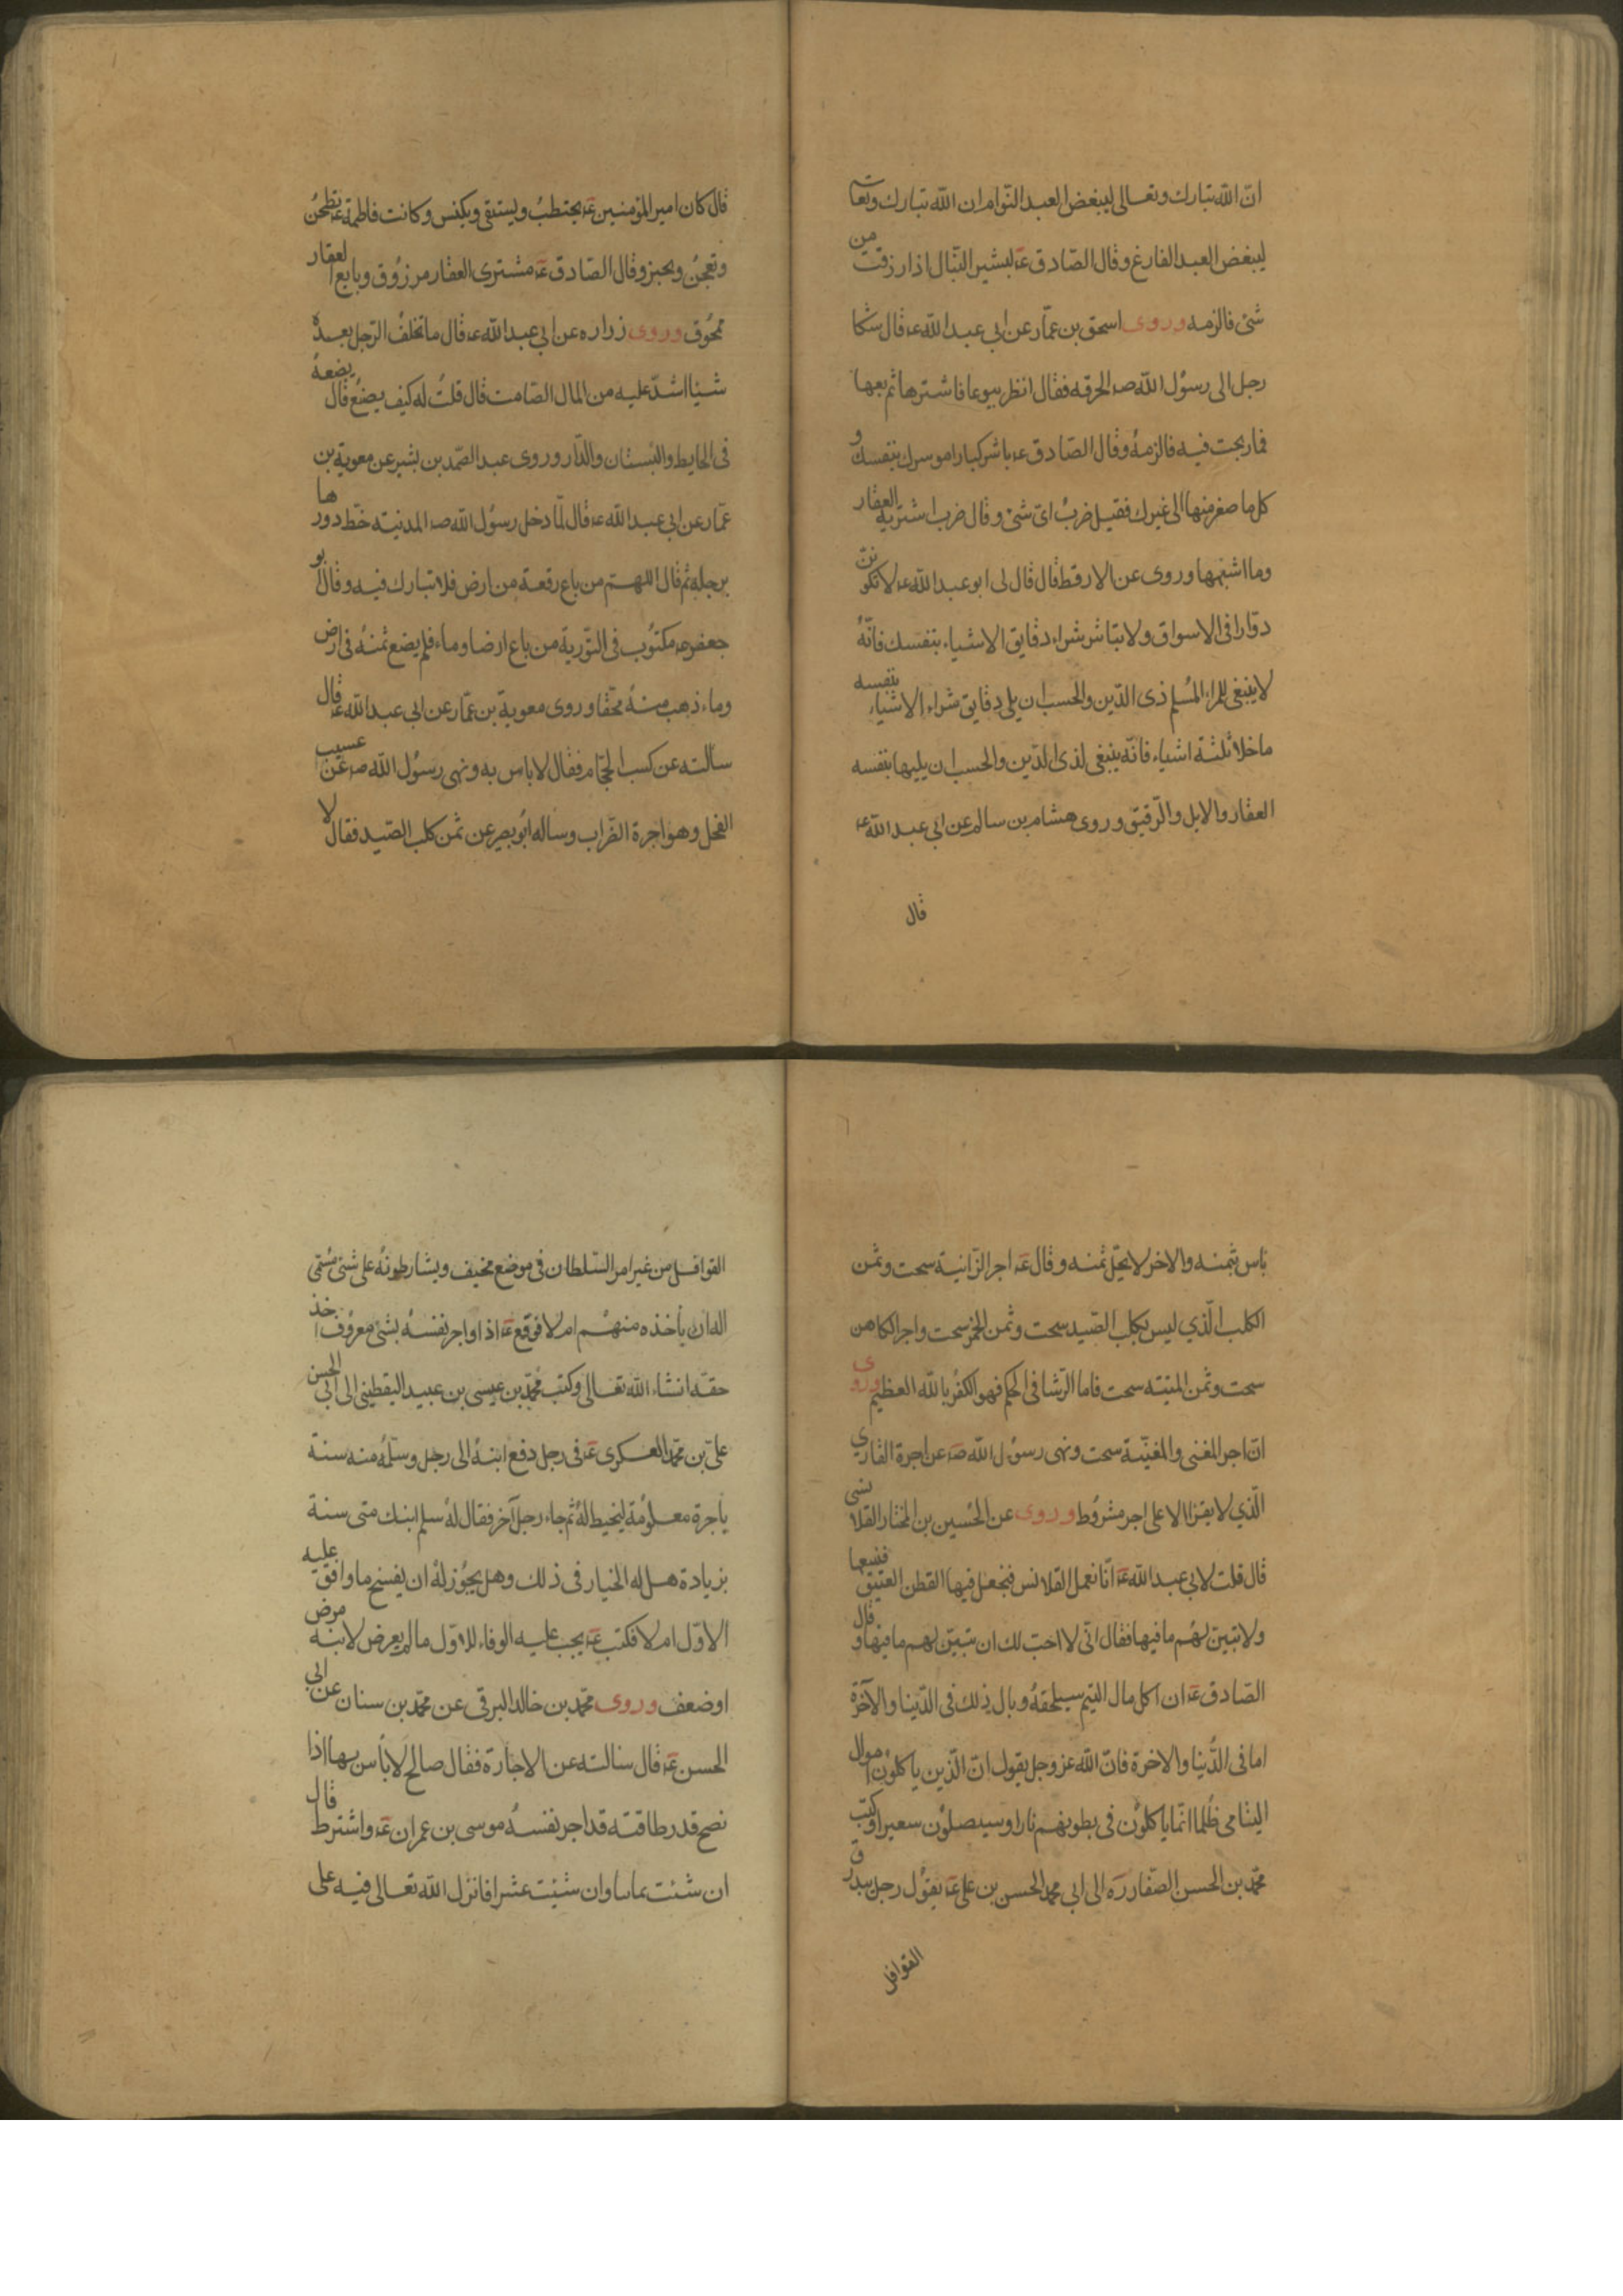 انّ الله تبارك وتعالى ليبغض العبد النّوام ان الله تبارك وتعا
ليبغض العبد الفارغ وقال الصّادق عه لبشير النبّال اذا رزقت من
شئ فالزمه وروى اسحق بن عمّار عن ابي عبد الله عه قال شكا
رجل الى رسوُل الله صه الحرفه فقال انظر بيوعا فاشترها ثم بعها
فما ربحت فيه فالزمهُ وقال الصّادق عه باشر كبار اموسرك بنفسك و
كل ما صغر منها الى غيرك فقيل ضربُ ايّ شئ وقال ضرب اشترية العقار
وما اشبهها وروى عن الارقط قال قال لى ابو عبد الله عه لا تكونن
دوّارا فى الاسواق ولا تباشر شراء دقايق الاشياء بنفسك فانّهُ
لا ينبغى للمراء المُسلم ذى الدّين والحسب ان يلى دقايق شراء الاشياء بنفسه
ما خلا ثلثة اشياء فانّه ينبغى لذى الدّين والحسب ان يليها بنفسه
العقار والابل والّرقيق وروى هشام بن سالم عن ابي عبد الله عه
قال
قال كان امير المؤمنين عه يحتطبُ ويستقى ويكنس وكانت فاطمة عه تطحنُ
وتعجنُ وتخبز وقال الصّادق عه مشترى العقار مرزوُق وبايع العقار
ممحُوق وروى زراره عن ابي عبد الله عه قال ما تخلفُ الرّجل بعدهُ
شيئا اشدّ عليه من المال الصّامت قال قلتُ له كيف يصنعُ قال يضعهُ
فى الحايط والبُستان والدّار وروى عبد الصّمد بن بشير عن معوية بن
عمّار عن ابي عبد الله عه قال لمّا دخل رسوُل الله صه المدنيته خطّ دورها
برجله ثم قال اللهم من باع رقعة من ارض فلا تبارك فيه وقال ابو
جعفر عه مكتوُب فى التّورية من باع ارضا وماء فلم يضع ثمنهُ فى ارض
وماء ذهب منهُ محقا وروى معوية بن عمّار عن ابي عبد الله عه قال
سالته عن كسب الحجّام فقال لا باس به ونهى رسوُل الله صه عن عسيب
الفحل وهو اجرة الضّراب وساله ابُو بصير عن ثمن كلب الصّيد فقال لا
باس بثمنه والاخر لا يحّل ثمنه وقال عه اجر الزّانية سحت وثمن
الكلب الّذي ليس بكلب الصّيد سحت وثمن الخمر سحت واجر الكاهن
سحت وثمن الميتته سحت فاما الرّشا فى الحكم فهو الكفرُ بالله العظيم وروى
انّ اجر المغنى والمغنّية سحت ونهى رسوُل الله صه عن اجرة القاري
الّذي لا يقرا الا على اجر مشروُط وروى عن الحُسين بن المختار القلانسى
قال قلت لابي عبد الله عه انّا نعمل القلانس فنجعل فيها القطن العتيق فنبيعها
ولا تبين لهُم ما فيها فقال انّى لا احبّ لك ان تبيّن لهم ما فيها و قال
الصّادق عه ان اكل مال اليتيم سيلحقهُ وبال ذلك فى الدّينا والآخرة
اما فى الدُّنيا والاخرة فانّ الله عز وجل يقول انّ الّذين ياكلوُن اموال
اليتامى ظُلما انّما ياكلوُن فى بطونهم نارا وسيصلوُن سعيرا وكتب
محمّد بن الحسن الصّفار ره الى ابي محمد الحسن بن على عه يقوُل رجل يبدرق
القوافل
القوافل من غير امر السّلطان فى موضع مخيف ويشارطونهُ على شئ مُسّمى
اله ان يأخذه منهُم ام لا فوقع عه اذا واجر نفسهُ بشئ معروُف اخذ
حقّه انشاء الله تعالى وكتب محمّد بن عيسى بن عبيد اليقطينى الى ابي الحسن
علىّ بن محمّد العسكرى عه فى رجل دفع ابنهُ الى رجل وسلّمهُ منه سنة
بأجرة معلوُمة ليخيط لهُ ثم جاء رجل آخر فقال لهُ سلم ابنك منى سنة
بزيادة هل له الخيار فى ذلك وهل يجوُز لهُ ان يفسخ ما وافق عليه
الاوّل ام لا فكتب عه يجب عليه الوفاء للاوّل ما لم يعرض لابنه مرض
او ضعف وروى محمّد بن خالد البرقى عن محمّد بن سنان عن ابي
الحسن عه قال سالته عن الاجارة فقال صالح لا بأس بها اذا
نصح قدر طاقته قد اجر نفسهُ موسى بن عمران عه واشترط قال
ان شئت ثمانيا وان شئت عشرا فانزل الله تعالى فيه على